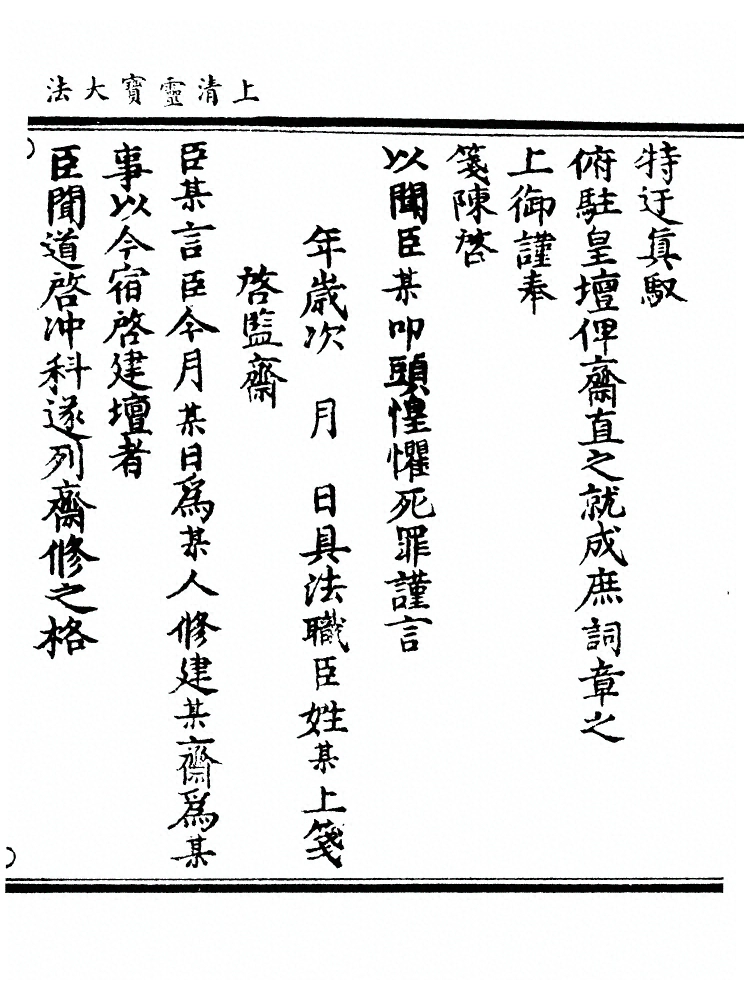 上清靈寳大法
特迂眞馭
俯駐皇壇俾齋直之就成庶詞章之
上御謹奉
箋陳啓
以聞臣某叩頭惶懼死罪謹言
年歲次　月　日具法職臣姓某上箋
啓監齋
臣某言臣今月某日爲某人修建某齋爲某
事以今宿啓建壇者
臣聞道啓冲科遂列齋修之格